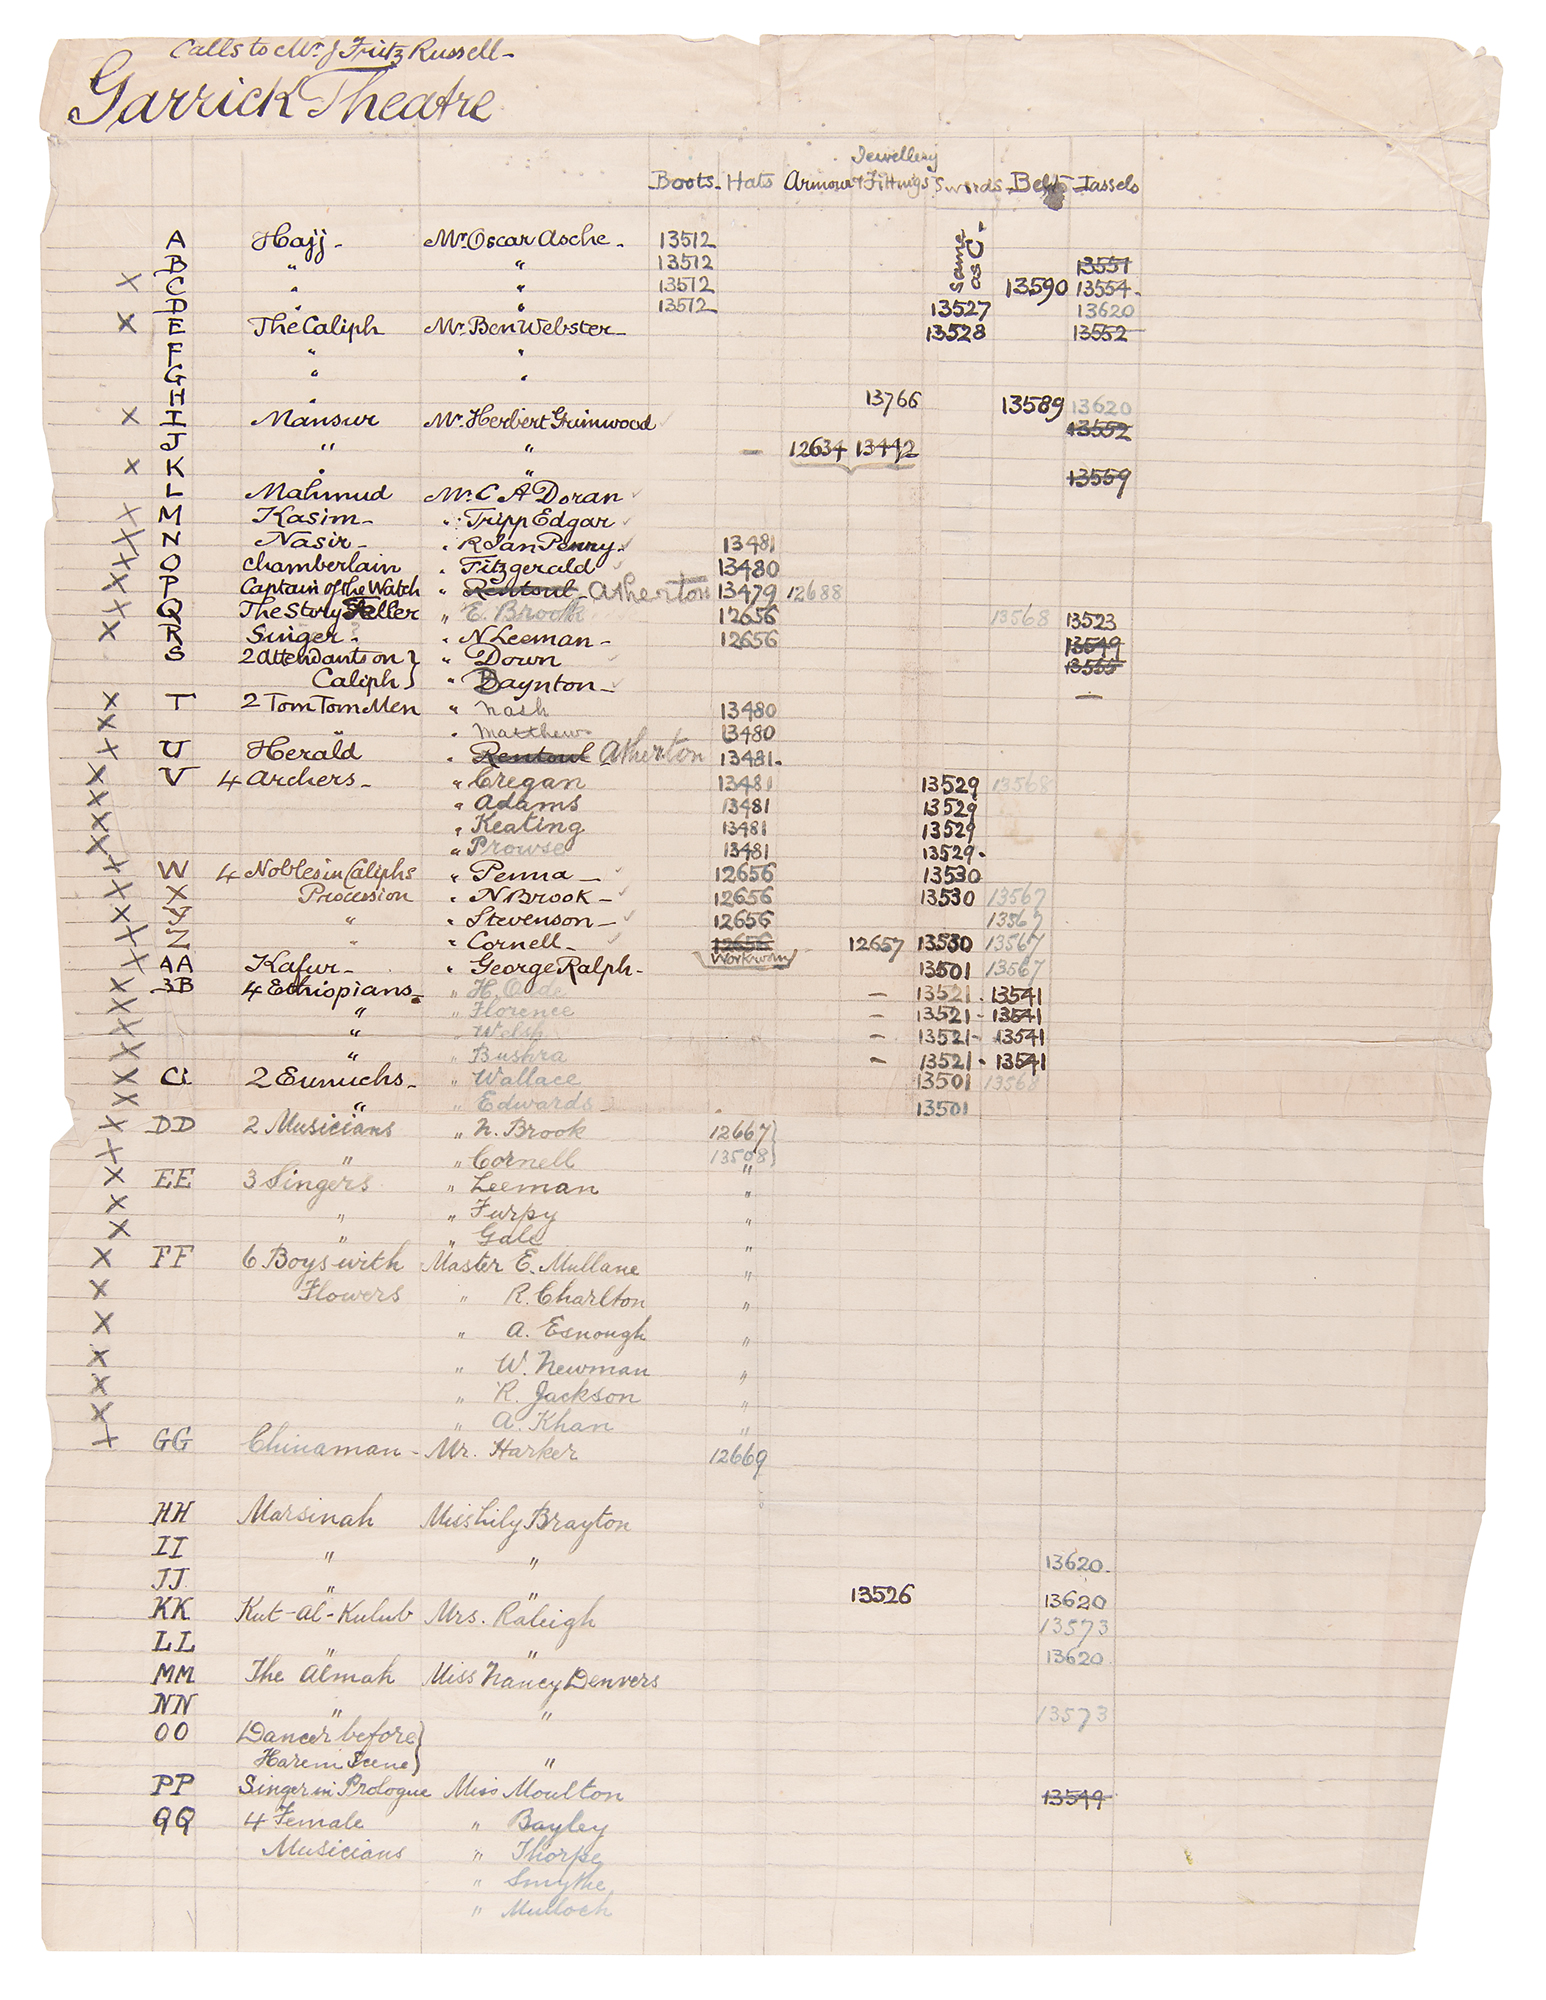 Calls to Mr J Fritz Russell-
Garrick Theatre
Jewellery
Boots- Hats Armour & Fittings Swords- Belts Tassels
A Hajj - Mr Oscar Asche - 13512 same as C -
B " " 13512 13551
X C " " 13512 13590 13554.
D " " 13512 13527 13620
X E The Caliph Mr Ben Webster- 13528 13552
F " "
G " "
H " 13766 13589 13620
X I Mansur Mr Herbert Grimwood 13552
J " " - 12634 13442
X K " " 13559
L Mahmud Mr C A Doran
X M Kasim- " Tripp Edgar
X N Nasir- " R Ian Penny. 13481
X O Chamberlain " Fitzgerald 13480
X P Captain of the Watch " Rentoul- Atherton 13479 12688
X Q The Story Teller " E. Brook 12656 13568 13523
X R Singer- " N Leeman- 12656 13549
S 2 Attendants on } " Down 13555
Caliph } " Baynton- -
X T 2 Tom Tom Men " Nash 13480
X " " Matthews 13480
X U Herald " Rentoul Atherton 13481.
X V 4 Archers- " Cregan 13481 13529 13568
X " Adams 13481 13529
X " Keating 13481 13529
X " Prowse 13481 13529.
X W 4 Nobles in Caliphs " Penna- 12656 13530
X X Procession " N Brook- 12656 13530 13567
X Y " " Stevenson- 12656 13567
X Z " " Cornell- 12656 12657 13530 13567
X AA Kafur- " George Ralph- 13501 13567
X BB 4 Ethiopians- " H. - 13521. 13541
X " " Florence - 13521- 13541
X " " Welsh " - 13521- 13541
X " " Bushra - 13521. 13541
X CC 2 Eunuchs- " Wallace 13501 13568
X " " Edwards 13501
X DD 2 Musicians " N. Brook 12667 }
X " " Cornell 13508 }
X EE 3 Singers " Leeman "
X " " Furpy "
X " " Gale "
X FF 6 Boys with Master E. Mullane "
X Flowers " R. Charlton "
X " A. Esnough "
X " W. Newman "
X " R. Jackson "
X " A. Khan "
X GG Chinaman- Mr. Harker 12669
HH Marsinah Miss Lily Brayton
II " " 13620.
JJ " " 13526 13620
KK Kut-al-Kulub Mrs. Raleigh 13573
LL " " 13620
MM The Almah Miss Nancy Denvers
NN " " 13573
OO Dancer before }
Harem Scene } "
PP Singer in Prologue Miss Moulton 13549
QQ 4 Female " Bayley
Musicians " Thorpe
" Smythe
" Mulloch